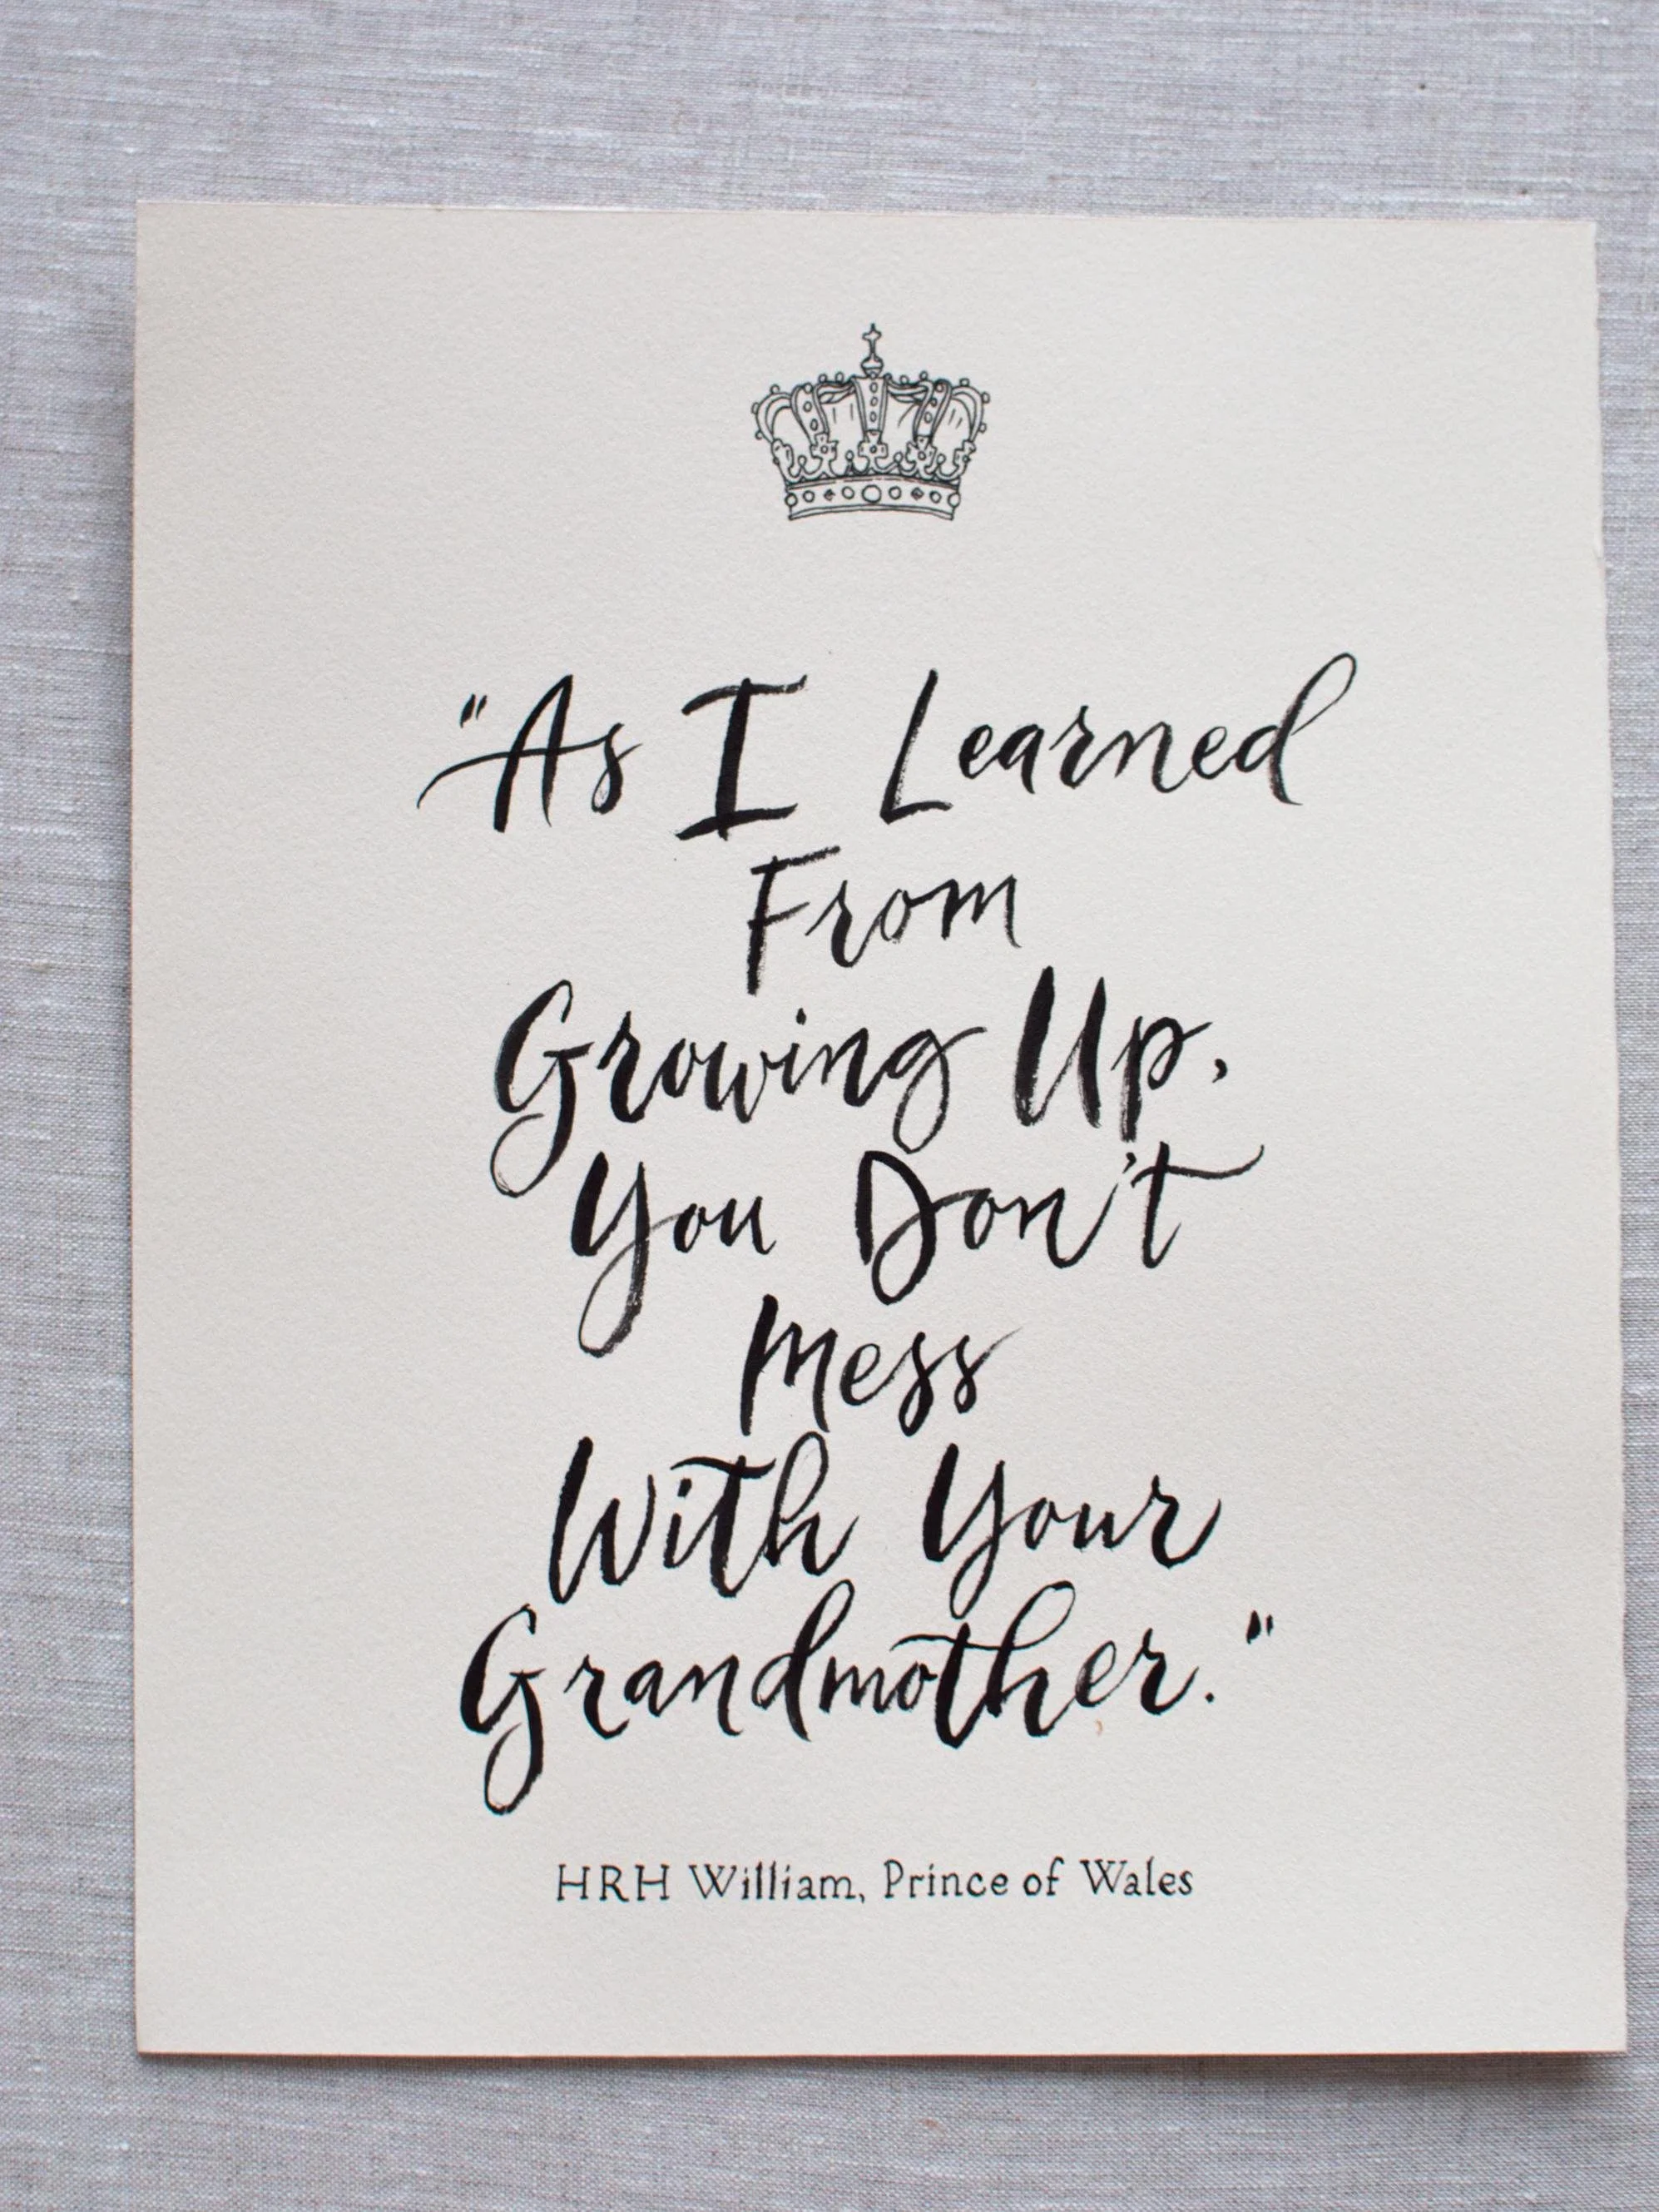 "As I Learned
From
Growing Up,
You Don't
Mess
With Your
Grandmother."
HRH William, Prince of Wales